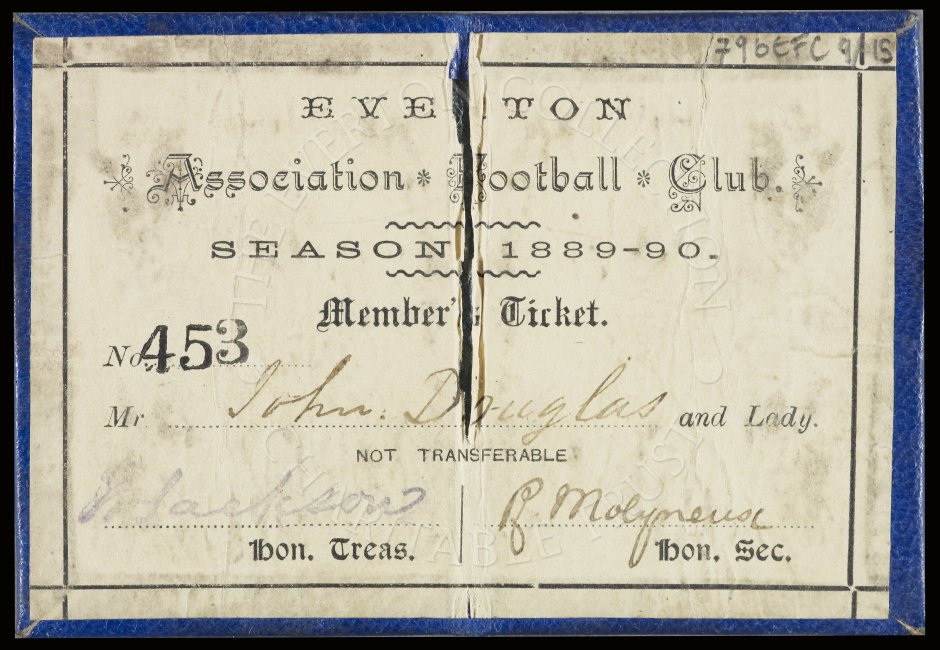 796EFC 9/15
EVERTON
Association * Football * Club.
SEASON 1889-90.
Member's Ticket.
No. 453
Mr John Douglas and Lady.
NOT TRANSFERABLE
Jackson R Molyneux
Hon. Treas. Hon. Sec.
THE EVERTON COLLECTION CHARITABLE TRUST